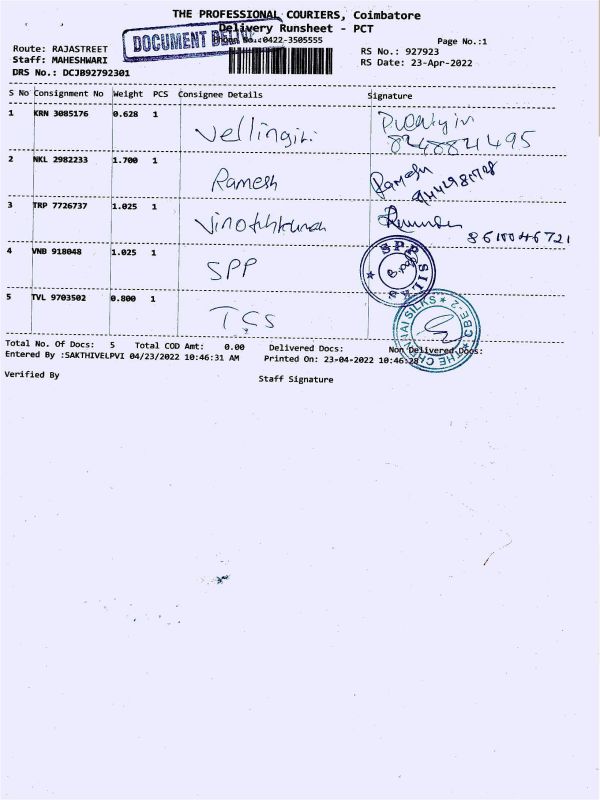 THE PROFESSIONAL COURIERS, Coimbatore
Delivery Runsheet - PCT
DOCUMENT
Phone No.:0422-3505555
Page No.:1
Route: RAJASTREET
RS No.: 927923
Staff: MAHESHWARI
RS Date: 23-Apr-2022
DRS No.: DCJB92792301
S No Consignment No Weight PCS Consignee Details Signature
1 KRN 3085176 0.628 1 Vellingiri
2 NKL 2982233 1.700 1 Ramesh Ramesh
3 TRP 7726737 1.025 1 Vinothkumar
8610046721
4 VNB 918048 1.025 1 SPP
SPP SILKS
5 TVL 9703502 0.800 1 TCS
THE CHENNAI SILKS CBE-2
Total No. Of Docs: 5 Total COD Amt: 0.00 Delivered Docs: Non Delivered Docs:
Entered By :SAKTHIVELPVI 04/23/2022 10:46:31 AM Printed On: 23-04-2022 10:46:28
Verified By
Staff Signature